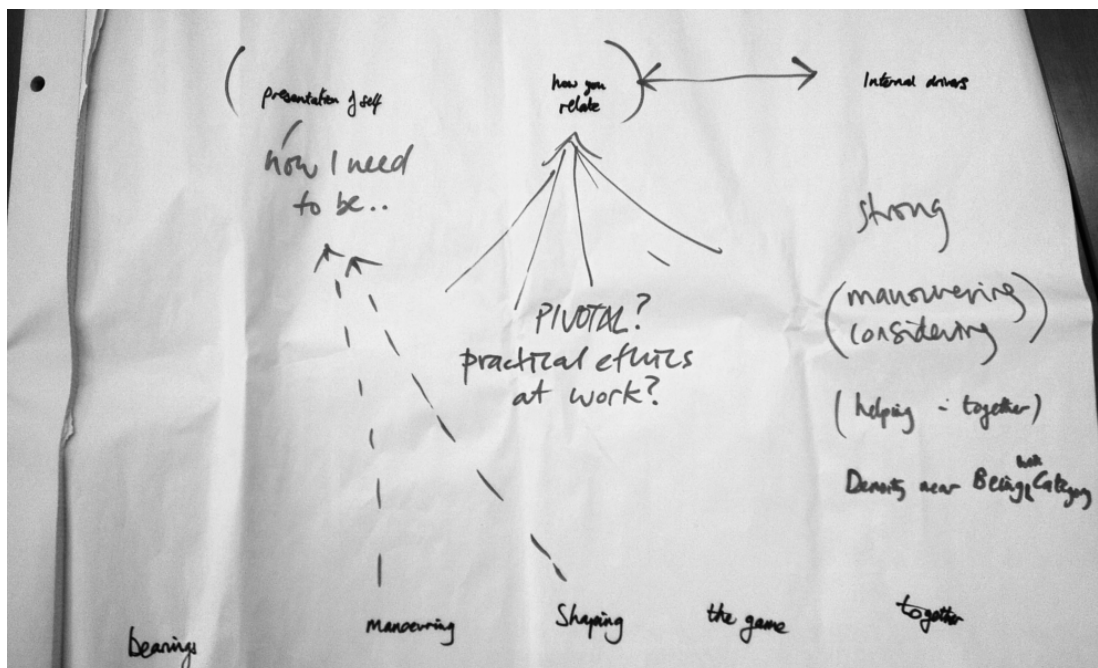 presentation of self
how you
relate
Internal drivers
how I need
to be..
strong
PIVOTAL?
practical ethics
at work?
(manouvering
considering)
(helping - together)
Density near Being Category
bearings
manoevring
Shaping
the game
together